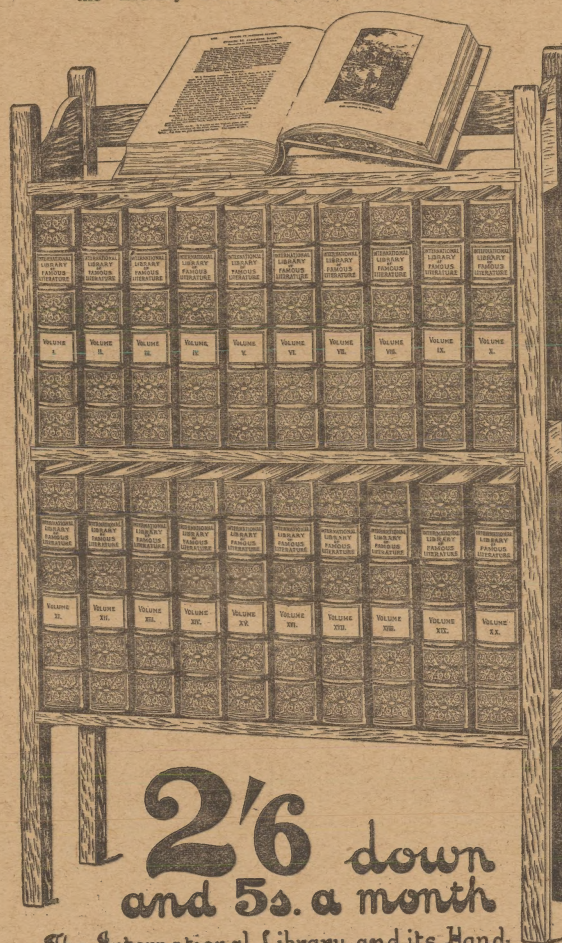 INTERNATIONAL
LIBRARY
OF
FAMOUS
LITERATURE
VOLUME
I.
INTERNATIONAL
LIBRARY
OF
FAMOUS
LITERATURE
VOLUME
II.
INTERNATIONAL
LIBRARY
OF
FAMOUS
LITERATURE
VOLUME
III.
INTERNATIONAL
LIBRARY
OF
FAMOUS
LITERATURE
VOLUME
IV.
INTERNATIONAL
LIBRARY
OF
FAMOUS
LITERATURE
VOLUME
V.
INTERNATIONAL
LIBRARY
OF
FAMOUS
LITERATURE
VOLUME
VI.
INTERNATIONAL
LIBRARY
OF
FAMOUS
LITERATURE
VOLUME
VII.
INTERNATIONAL
LIBRARY
OF
FAMOUS
LITERATURE
VOLUME
VIII.
INTERNATIONAL
LIBRARY
OF
FAMOUS
LITERATURE
VOLUME
IX.
INTERNATIONAL
LIBRARY
OF
FAMOUS
LITERATURE
VOLUME
X.
INTERNATIONAL
LIBRARY
OF
FAMOUS
LITERATURE
VOLUME
XI.
INTERNATIONAL
LIBRARY
OF
FAMOUS
LITERATURE
VOLUME
XII.
INTERNATIONAL
LIBRARY
OF
FAMOUS
LITERATURE
VOLUME
XIII.
INTERNATIONAL
LIBRARY
OF
FAMOUS
LITERATURE
VOLUME
XIV.
INTERNATIONAL
LIBRARY
OF
FAMOUS
LITERATURE
VOLUME
XV.
INTERNATIONAL
LIBRARY
OF
FAMOUS
LITERATURE
VOLUME
XVI.
INTERNATIONAL
LIBRARY
OF
FAMOUS
LITERATURE
VOLUME
XVII.
INTERNATIONAL
LIBRARY
OF
FAMOUS
LITERATURE
VOLUME
XVIII.
INTERNATIONAL
LIBRARY
OF
FAMOUS
LITERATURE
VOLUME
XIX.
INTERNATIONAL
LIBRARY
OF
FAMOUS
LITERATURE
VOLUME
XX.
2/6 down
and 5s. a month
The International Library and its Hand-